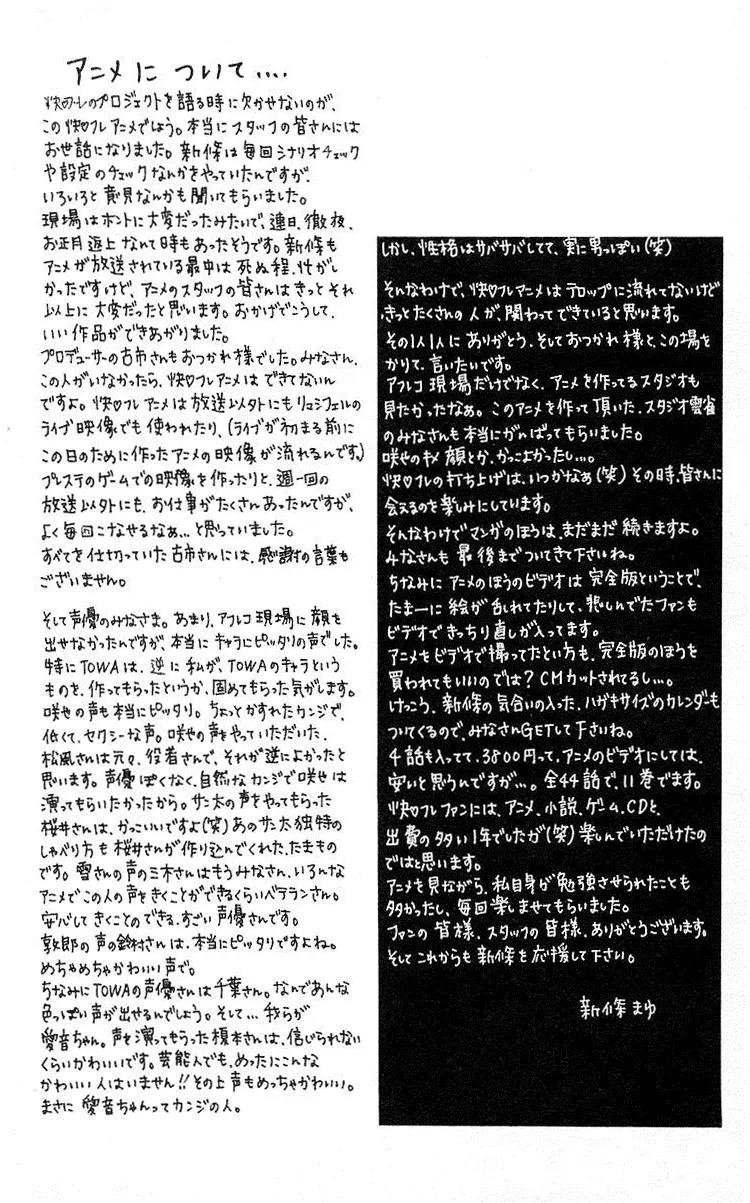 アニメに ついて‥‥
快♡フレのプロジェクトを語る時に欠かせないのが、
この 快♡フレ アニメでしょう。本当にスタッフの皆さんには
お世話になりました。新條は毎回シナリオチェック
や設定のチェックなんかをやっていたんですが、
いろいろと 意見なんかも聞いてもらいました。
現場はホントに大変だったみたいで、連日、徹夜、
お正月 返上 なんて時もあったそうです。新條も
アニメが放送されている最中は 死ぬ程、忙がし
かったですけど、アニメのスタッフの皆さんは きっと それ
以上に 大変だったと思います。おかげでこうして、
いい作品ができあがりました。
プロデューサーの古市さんもおつかれ様でした。みなさん、
この人がいなかったら、快♡フレアニメは できてないん
ですよ。快♡フレ アニメは 放送以外にもリュシフェルの
ライブ映像でも 使われたり、(ライブが初まる前に
この日のために作ったアニメの映像が流れるんです。)
プレステのゲームでの映像を作ったりと、週一回の
放送以外にも、お仕事がたくさんあったんですが、
よく毎回こなせるなぁ…と思っていました。
すべてを仕切っていた古市さんには、感謝の言葉も
ございません。
そして声優のみなさま。あまり、アフレコ現場に顔を
出せなかったんですが、本当に キャラにピッタリの声でした。
特にTOWAは、逆に私が、TOWAのキャラという
ものを、作ってもらったというか、固めてもらった気がします。
咲也の声も本当にピッタリ。ちょっとかすれたカンジで、
低くて、セクシーな声。咲也の声をやっていただいた、
松風さんは元々、役者さんで、それが逆によかったと
思います。声優ぽくなく、自然なカンジで咲也は
演ってもらいたかったから。サン太の声をやってもらった
桜井さんは、かっこいいですよ(笑)あのサン太独特の
しゃべり方も 桜井さんが作り込んでくれた、たまもの
です。雪さんの声の三木さんはもうみなさん、いろんな
アニメでこの人の声をきくことができるくらいベテランさん。
安心して きくことのできる、すごい 声優さんです。
敦郎の声の鈴村さんは、本当にピッタリですよね。
めちゃめちゃかわいい声で。
ちなみにTOWAの声優さんは千葉さん。なんであんな
色っぽい声が出せるんでしょう。そして… 我らが
愛音ちゃん。声を演ってもらった榎本さんは、信じられない
くらいかわいいです。芸能人でも、めったにこんな
かわいい人はいません!!その上声もめっちゃかわいい。
まさに 愛音ちゃんってカンジの人。
しかし、性格はサバサバしてて、実に男っぽい(笑)
そんなわけで、快♡フレアニメは テロップに流れてないけど
きっとたくさんの人が、関わってできていると思います。
その1人1人に ありがとう、そしておつかれ様と、この場を
かりて、言いたいです。
アフレコ現場だけでなく、アニメを作ってるスタジオも
見たかったなぁ。このアニメを作って頂いた、スタジオ雲雀
のみなさんも本当にがんばってもらいました。
咲也のキメ顔とか、かっこよかったし…。
快♡フレの打ち上げは、いつかなぁ(笑)その時、皆さんに
会えるのを楽しみにしています。
そんなわけでマンガのほうは、まだまだ続きますよ。
みなさんも最後までついてきて下さいね。
ちなみに アニメのほうのビデオは 完全版ということで、
たまーに絵が乱れてたりして、悲しんでたファンも
ビデオできっちり直しが入ってます。
アニメをビデオで撮ってたという方も、完全版のほうを
買われてもいいのでは?CMカットされてるし…。
けっこう、新條の気合いの入った、ハガキサイズのカレンダーも
ついてくるので、みなさんGETして下さいね。
4話も入ってて、3800円って、アニメのビデオにしては、
安いと思うんですが…。全44話で、11巻でます。
快♡フレファンには、アニメ、小説、ゲーム、CDと、
出費の多い1年でしたが(笑)楽しんでいただけたの
ではと思います。
アニメを見ながら、私自身が勉強させられたことも
多かったし、毎回楽しませてもらいました。
ファンの皆様、スタッフの皆様、ありがとうございます。
そしてこれからも新條を応援して下さい。
新條まゆ